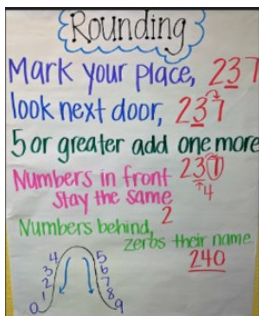 Rounding
Mark your place, 237
look next door, 237
5 or greater add one more
Numbers in front 237
stay the same +4
Numbers behind, 2
zeros their name
240
4 5
3 6
2 7
1 8
0 9